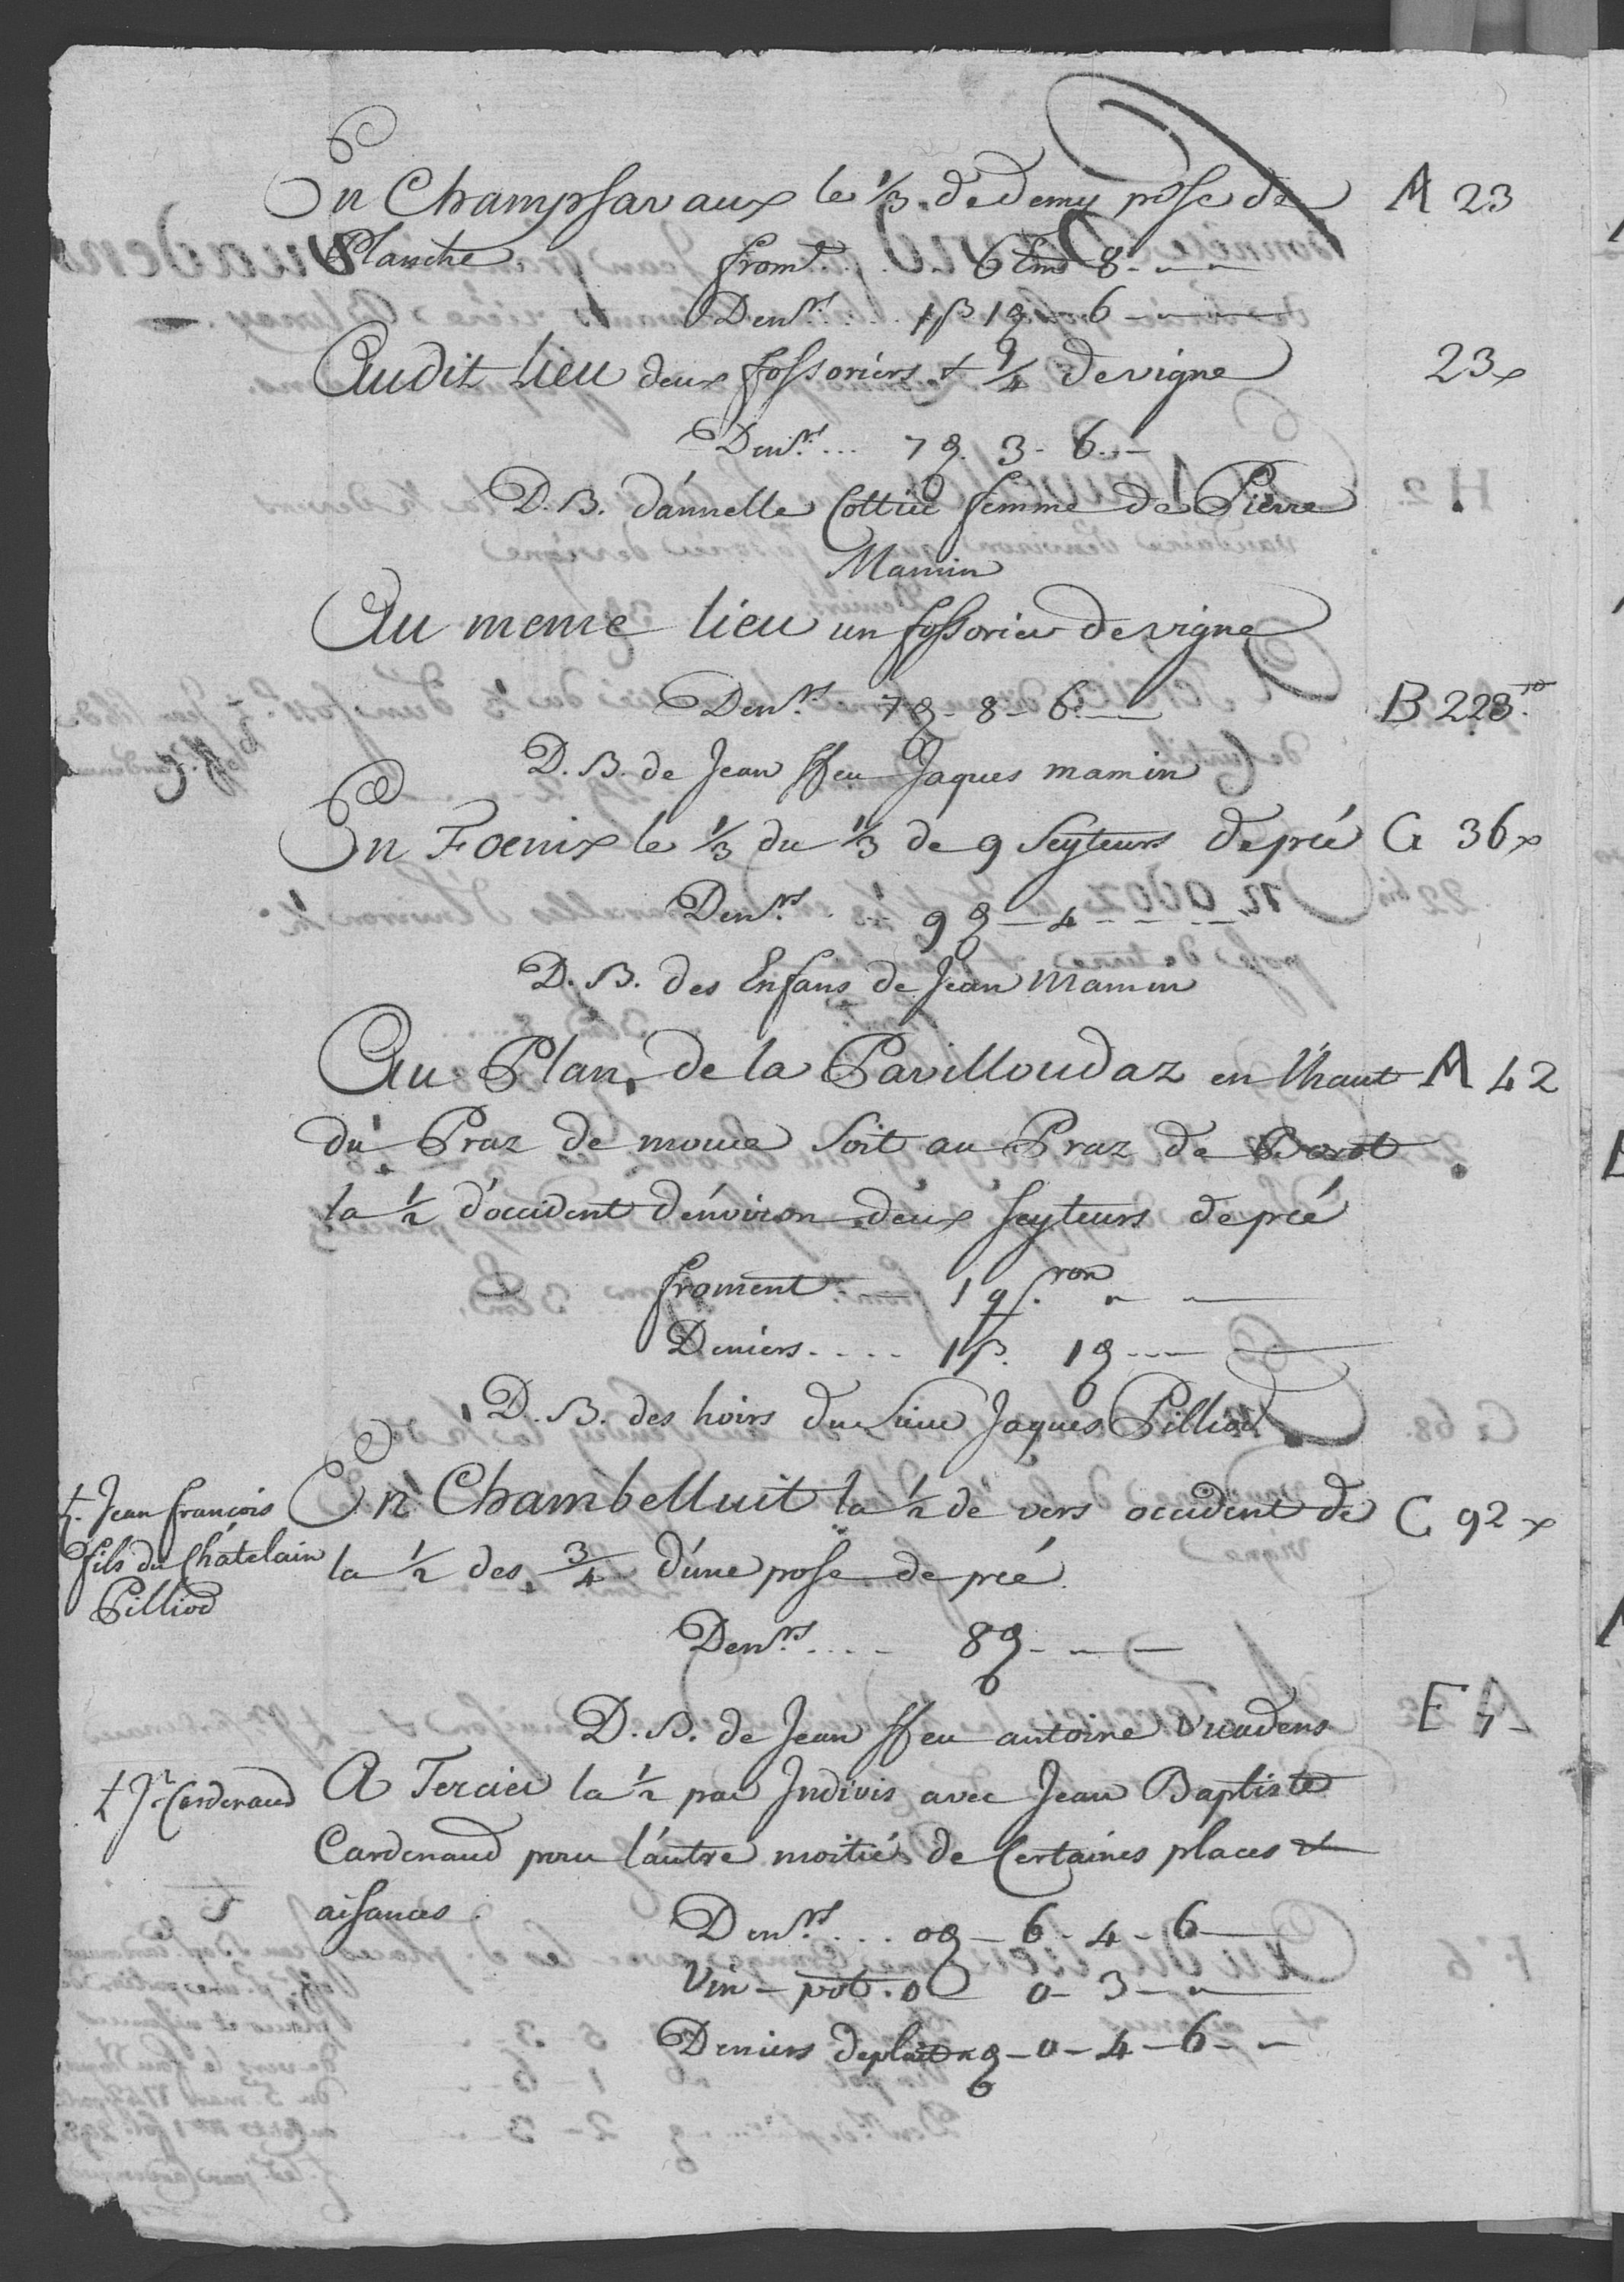 En Champsavaux le 1/3. de demy pose de A 23
Planche froml. . . . 6 8 - - -
Denrs. . . . . 1ß 1 - 6 - -
Audit Lieu deux fossoriers & 1/4 de vigne 23x
Denrs. ... 7 . 3 - 6 . -
D. B. d'annelle Cottier femme de Pierre
Mamin
Au meme lieu un fossorier de vigne
Denrs. 7 - 8 - 6 - B 223.to
D. B. de Jean ffeu Jaques mamin
En Foenix le 1/3 du 1/3 de 9 Seyteurs de pré G 36x
Denrs. . . 9 - 4 - - -
D. B. des Enfans de Jean Mamin
Au Plan, de la Pavilloudaz en l'haut A 42
du Praz de moue Soit au Praz de Borot
la 1/2 d'occident d'environ deux seyteurs de pré
froment - 1 q.ron " -
Deniers. . . . 1ß. 1 - - -
D. B. des hoirs du Lieu Jaques Pilliod
t. Jean françois
fils du Châtelain
Pilliod
En Chambelluit la 1/2 de vers occident de C 92 x
la 1/2 des 3/4 d'une pose de pré.
Denrs. . . . 8 - - -
D. B. de Jean ffeu antoine Vuadens E 4 -
t Jn Cardenaud
A Tercier la 1/2 par Jndivis avec Jean Baptiste
Cardenaud pour l'autre moitié de Certaines places &
aisances.
Denrs. . . . 0 - 6 - 4 - 6 -
Vin - pot. 0 0 - 3 - -
Deniers de plait - 0 - 4 - 6 - -